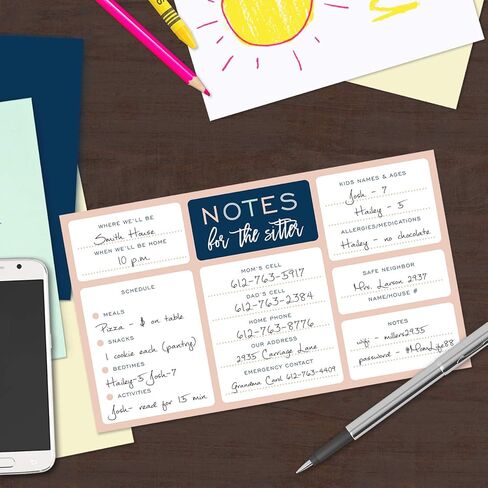 WHERE WE'LL BE
Smith House
WHEN WE'LL BE HOME
10 p.m.
NOTES
for the sitter
KIDS NAMES & AGES
Josh - 7
Hailey - 5
ALLERGIES/MEDICATIONS
Hailey - no chocolate
SCHEDULE
MEALS
Pizza - $ on table
SNACKS
1 cookie each (pantry)
BEDTIMES
Hailey-5 Josh-7
ACTIVITIES
Josh- read for 15 min
MOM'S CELL
612-763-5917
DAD'S CELL
612-763-2384
HOME PHONE
612-763-8776
OUR ADDRESS
2935 Carriage Lane
EMERGENCY CONTACT
Grandma Carol 612-763-4409
SAFE NEIGHBOR
Mrs. Larson 2937
NAME/HOUSE #
NOTES
wifi - millers2935
password -